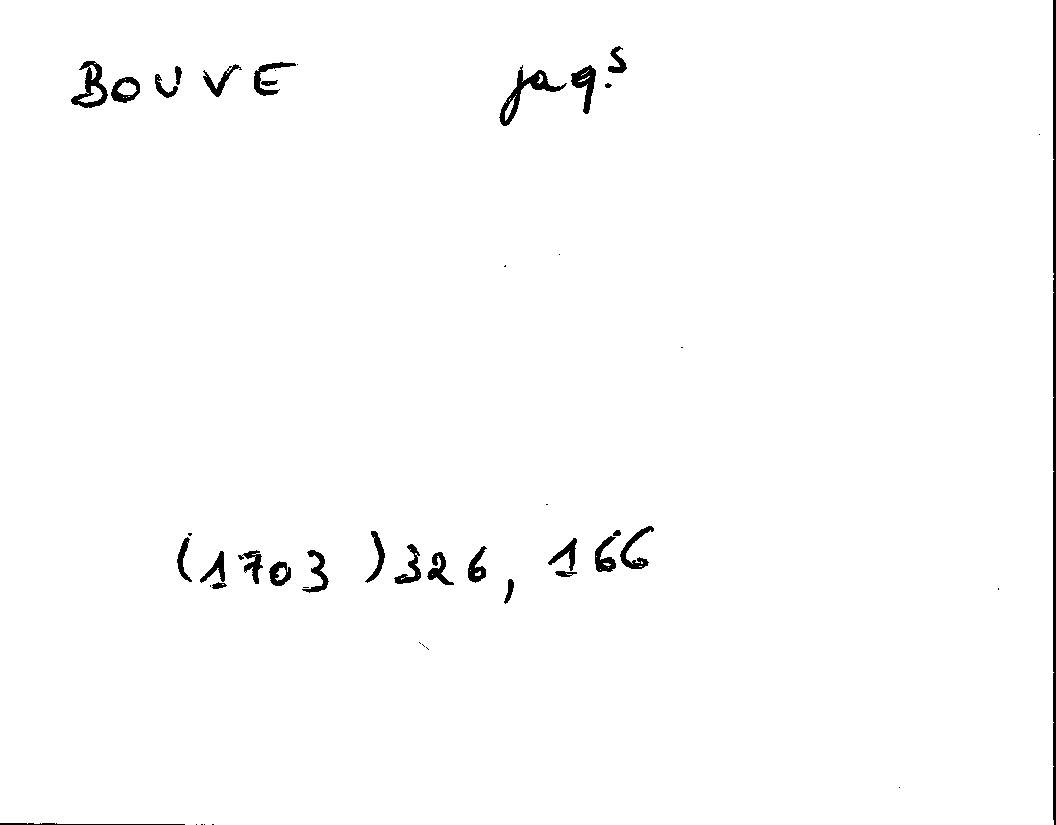 BOUVE jaq.s
(1703) 326, 166